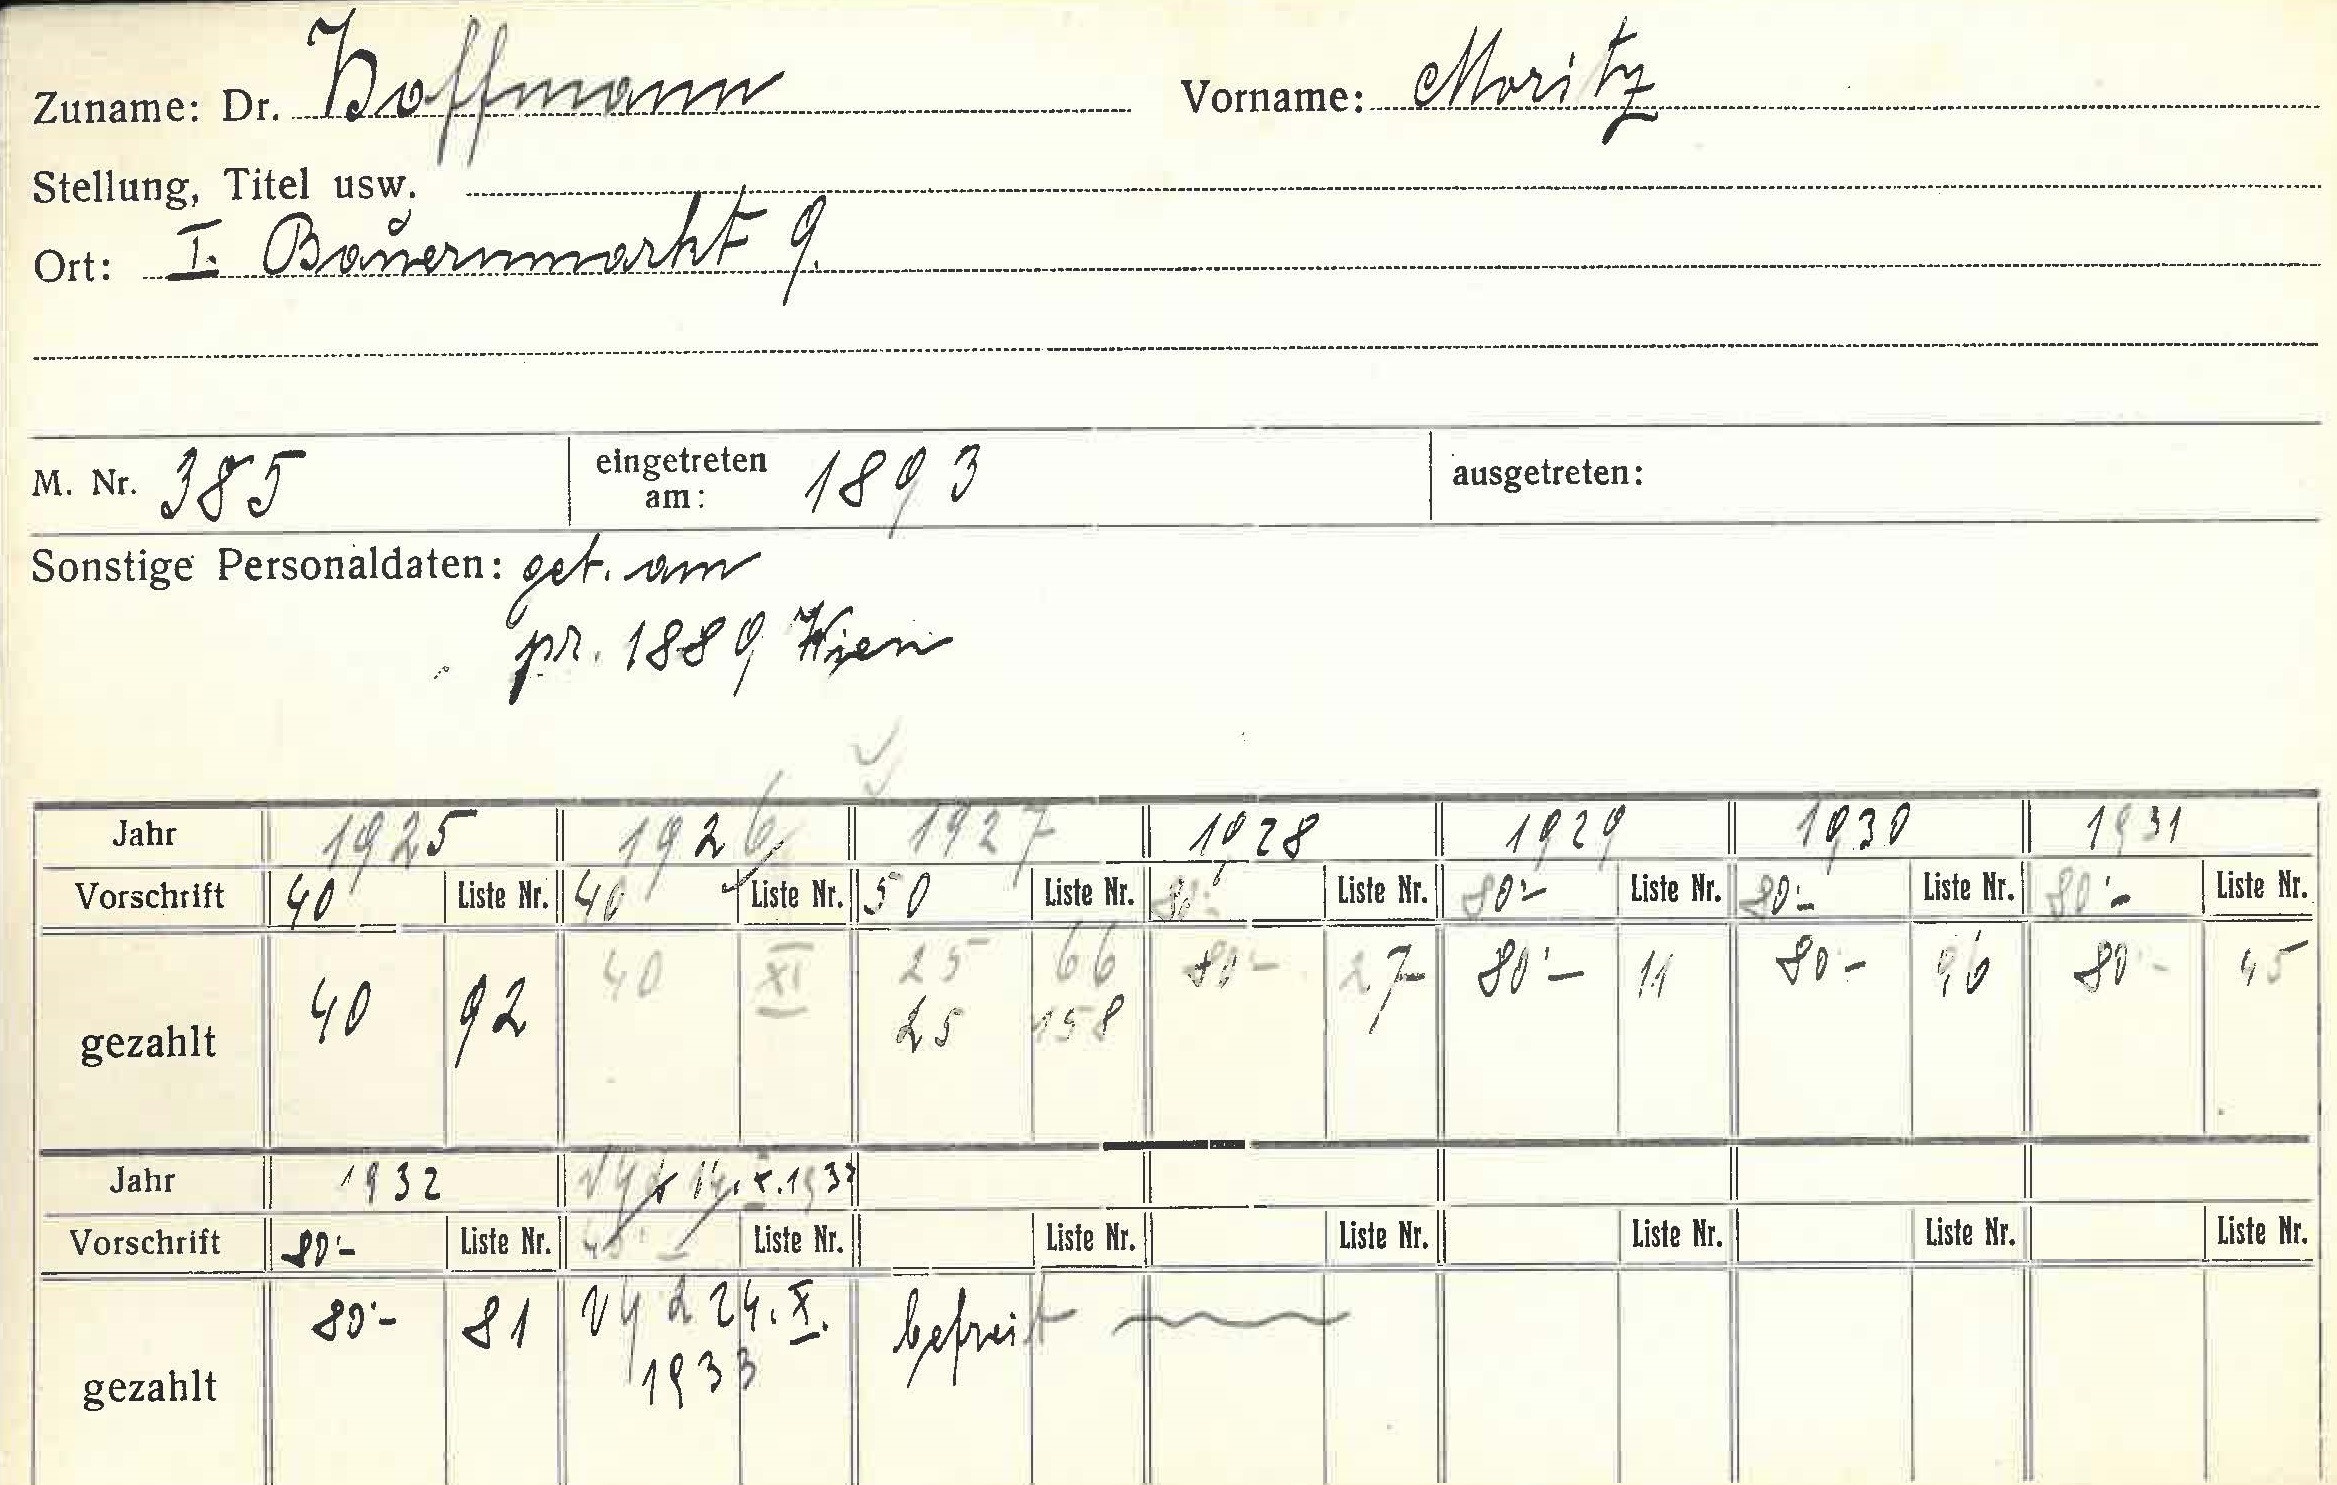 Zuname: Dr. Hoffmann Vorname: Moritz
Stellung, Titel usw.
Ort: I. Bauernmarkt 9.
M. Nr. 385 eingetreten am: 1893 ausgetreten:
Sonstige Personaldaten: geb. am
pr. 1889 Wien
Jahr 1925 1926 1927 1928 1929 1930 1931
Vorschrift 40 Liste Nr. 40 Liste Nr. 50 Liste Nr. 80.- Liste Nr. 80.- Liste Nr. 80.- Liste Nr. 80.- Liste Nr.
gezahlt 40 92 40 XI 25 66 80.- 27 80.- 11 80.- 96 80.- 45
25 158
Jahr 1932
Vorschrift 80.- Liste Nr. Liste Nr. Liste Nr. Liste Nr. Liste Nr. Liste Nr. Liste Nr.
gezahlt 80.- 81 24. X. 1933 befreit